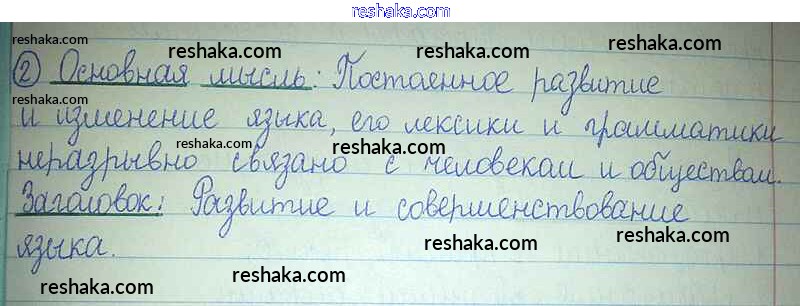 reshaka.com
② Основная мысль: Постоенное развитие
и изменение языка, его лексики и грамматики
неразрывно связано с человеком и обществом.
Заголовок: Развитие и совершенствование
языка.
reshaka.com
reshaka.com
reshaka.com
reshaka.com
reshaka.com
reshaka.com
reshaka.com
reshaka.com
reshaka.com
reshaka.com
reshaka.com
reshaka.com